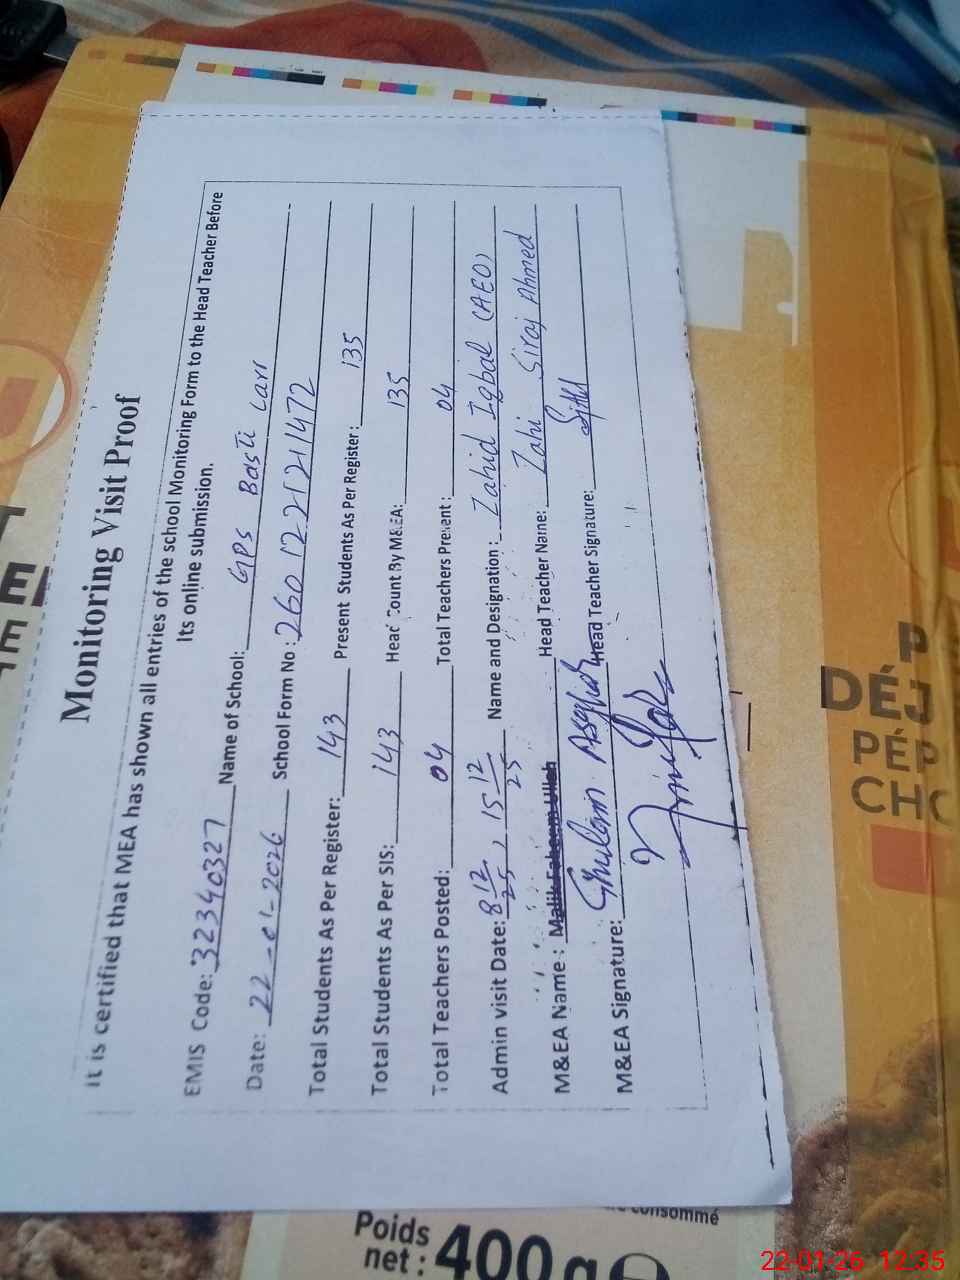 Monitoring Visit Proof
It is certified that MEA has shown all entries of the school Monitoring Form to the Head Teacher Before
Its online submission.
EMIS Code: 32340327 Name of School: GPS Basti Larr
Date: 22-01-2026 School Form No: 26012212121472
Total Students As Per Register: 143 Present Students As Per Register: 135
Total Students As Per SIS: 143 Head Count By M&EA: 135
Total Teachers Posted: 04 Total Teachers Present: 04
Admin visit Date: 8 12/25, 15 12/25 Name and Designation: Zahid Iqbal (AEO)
M&EA Name: Malik Faheem Ullah Ghulam Asghar Head Teacher Name: Zahi Siraj Ahmed
M&EA Signature: Head Teacher Signature:
DÉJ
PÉP
CHO
consommé
Poids
net : 400 g
22-01-26 12:35